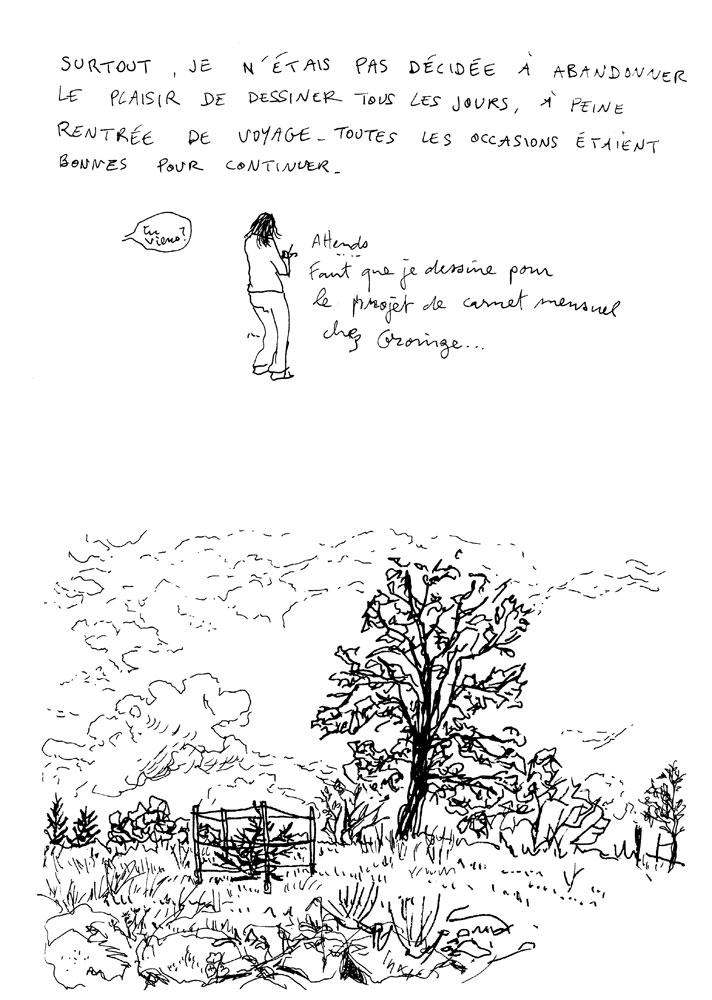 SURTOUT, JE N'ÉTAIS PAS DÉCIDÉE À ABANDONNER
LE PLAISIR DE DESSINER TOUS LES JOURS, À PEINE
RENTRÉE DE VOYAGE_ TOUTES LES OCCASIONS ÉTAIENT
BONNES POUR CONTINUER_
tu
viens?
Attends
Faut que je dessine pour
le projet de carnet mensuel
chez